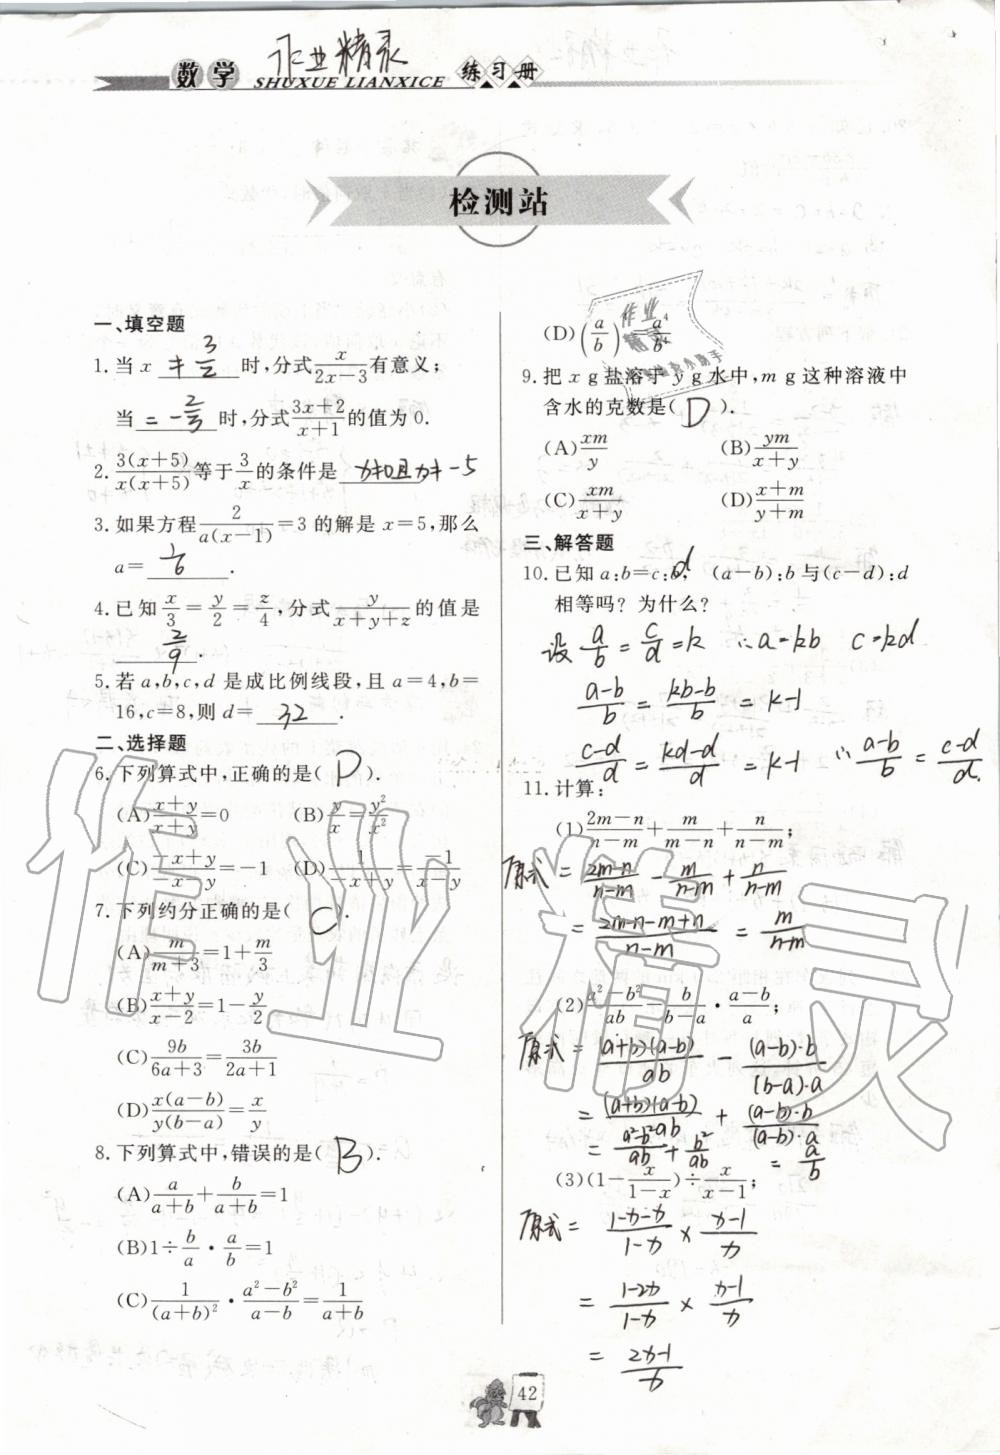 作业精灵
数学 SHUXUE LIANXICE 练习册
检测站
一、填空题
1. 当 x ≠ 3/2 时,分式 x/(2x−3) 有意义;
当 = −2/3 时,分式 (3x+2)/(x+1) 的值为 0.
2. 3(x+5)/x(x+5) 等于 3/x 的条件是 x≠0且x≠−5
3. 如果方程 2/a(x−1) =3 的解是 x=5,那么
a= 1/6 .
4. 已知 x/3 = y/2 = z/4 ,分式 y/(x+y+z) 的值是
2/9 .
5. 若 a,b,c,d 是成比例线段,且 a=4,b=
16,c=8,则 d= 32 .
二、选择题
6. 下列算式中,正确的是( D ).
(A) (x+y)/(x+y) =0 (B) y/x = y²/x²
(C) (−x+y)/(−x−y) =−1 (D) 1/(−x+y) = −1/(x−y)
7. 下列约分正确的是( C ).
(A) m/(m+3) =1+ m/3
(B) (x+y)/(x−2) =1− y/2
(C) 9b/(6a+3) = 3b/(2a+1)
(D) x(a−b)/y(b−a) = x/y
8. 下列算式中,错误的是( B ).
(A) a/(a+b) + b/(a+b) =1
(B) 1÷ b/a · a/b =1
(C) 1/(a+b)² · (a²−b²)/(a−b) = 1/(a+b)
(D) (a/b) = a⁴/b⁴
9. 把 x g 盐溶于 y g 水中,m g 这种溶液中
含水的克数是( D ).
(A) xm/y (B) ym/(x+y)
(C) xm/(x+y) (D) (x+m)/(y+m)
三、解答题
10. 已知 a:b=c:d, (a−b):b 与(c−d):d
相等吗?为什么?
设 a/b = c/d =k ∴a=kb c=kd
(a−b)/b = (kb−b)/b = k−1
(c−d)/d = (kd−d)/d = k−1 ∴ (a−b)/b = (c−d)/d.
11. 计算:
(1) (2m−n)/(n−m) + m/(m−n) + n/(n−m) ;
原式 = (2m−n)/(n−m) − m/(n−m) + n/(n−m)
= (2m−n−m+n)/(n−m) = m/(n−m)
(2) (a²−b²)/ab − b/(b−a) · (a−b)/a ;
原式 = (a+b)(a−b)/ab − (a−b)·b/(b−a)·a
= (a+b)(a−b)/ab + (a−b)·b/(a−b)·a
= (a²−b²)/ab + b²/ab = a/b
(3) (1− x/(1−x)) ÷ x/(x−1) ;
原式 = (1−x−x)/(1−x) × (x−1)/x
= (1−2x)/(1−x) × (x−1)/x
= (2x−1)/x
42
作业精灵